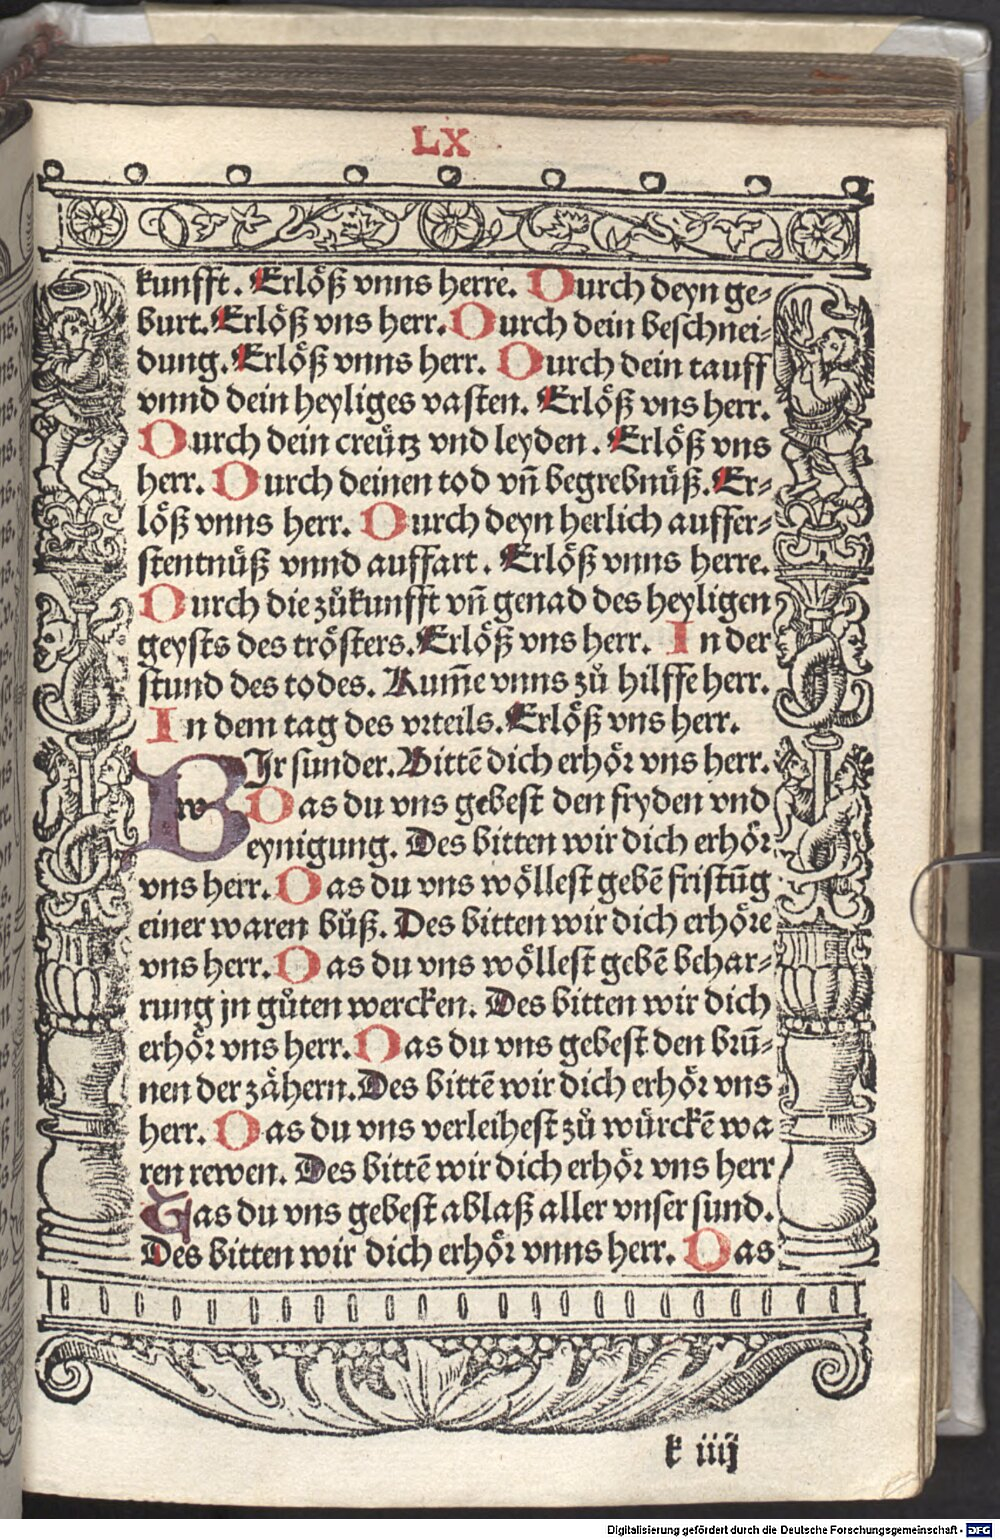 LX
kunfft. Erlöß vnns herre. Durch deyn ge⸗
burt. Erlöß vns herr. Durch dein beschnei⸗
dung. Erlöß vnns herr. Durch dein tauff
vnnd dein heyliges vasten. Erlöß vns herr.
Durch dein creütz vnd leyden. Erlöß vns
herr. Durch deinen tod vñ begrebnüß. Er⸗
löß vnns herr. Durch deyn herlich auffer⸗
stentnüß vnnd auffart. Erlöß vnns herre.
Durch die zůkunfft vñ genad des heyligen
geysts des trösters. Erlöß vns herr. In der
stund des todes. Kum̃e vnns zů hilffe herr.
In dem tag des vrteils. Erlöß vns herr.
WIr sunder. Bittē dich erhör vns herr.
Das du vns gebest den fryden vnd
eynigung. Des bitten wir dich erhör
vns herr. Das du vns wöllest gebē fristūg
einer waren bůß. Des bitten wir dich erhöre
vns herr. Das du vns wöllest gebē behar⸗
rung jn gůten wercken. Des bitten wir dich
erhör vns herr. Das du vns gebest den brū⸗
nen der zähern. Des bittē wir dich erhör vns
herr. Das du vns verleihest zů würckē wa
ren rewen. Des bittē wir dich erhör vns herr
Das du vns gebest ablaß aller vnser sund.
Des bitten wir dich erhör vnns herr. Das
k iiij
Digitalisierung gefördert durch die Deutsche Forschungsgemeinschaft - DFG